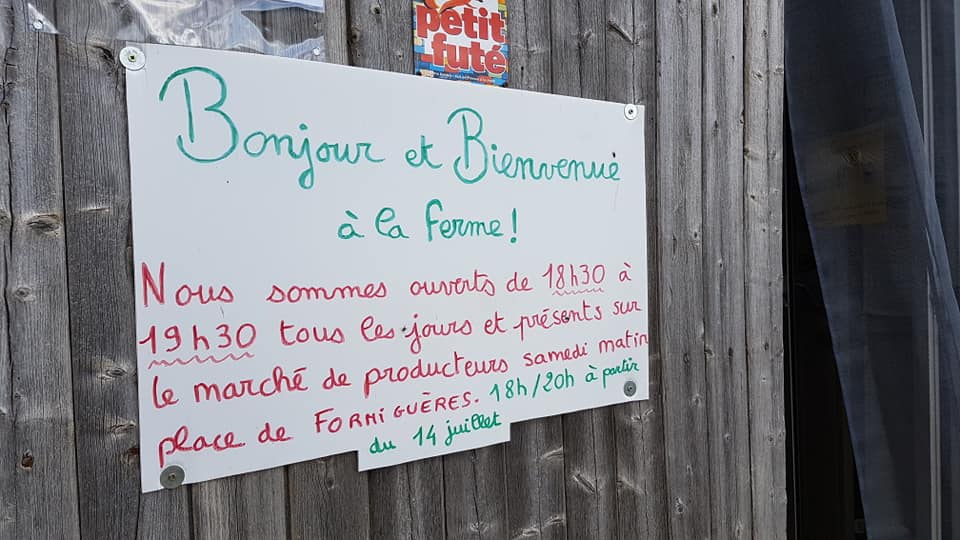 petit
futé
Bonjour et Bienvenue
à la ferme !
Nous sommes ouverts de 18h30 à
19h30 tous les jours et présents sur
le marché de producteurs samedi matin
place de FORMIGUÈRES. 18h/20h à partir
du 14 juillet